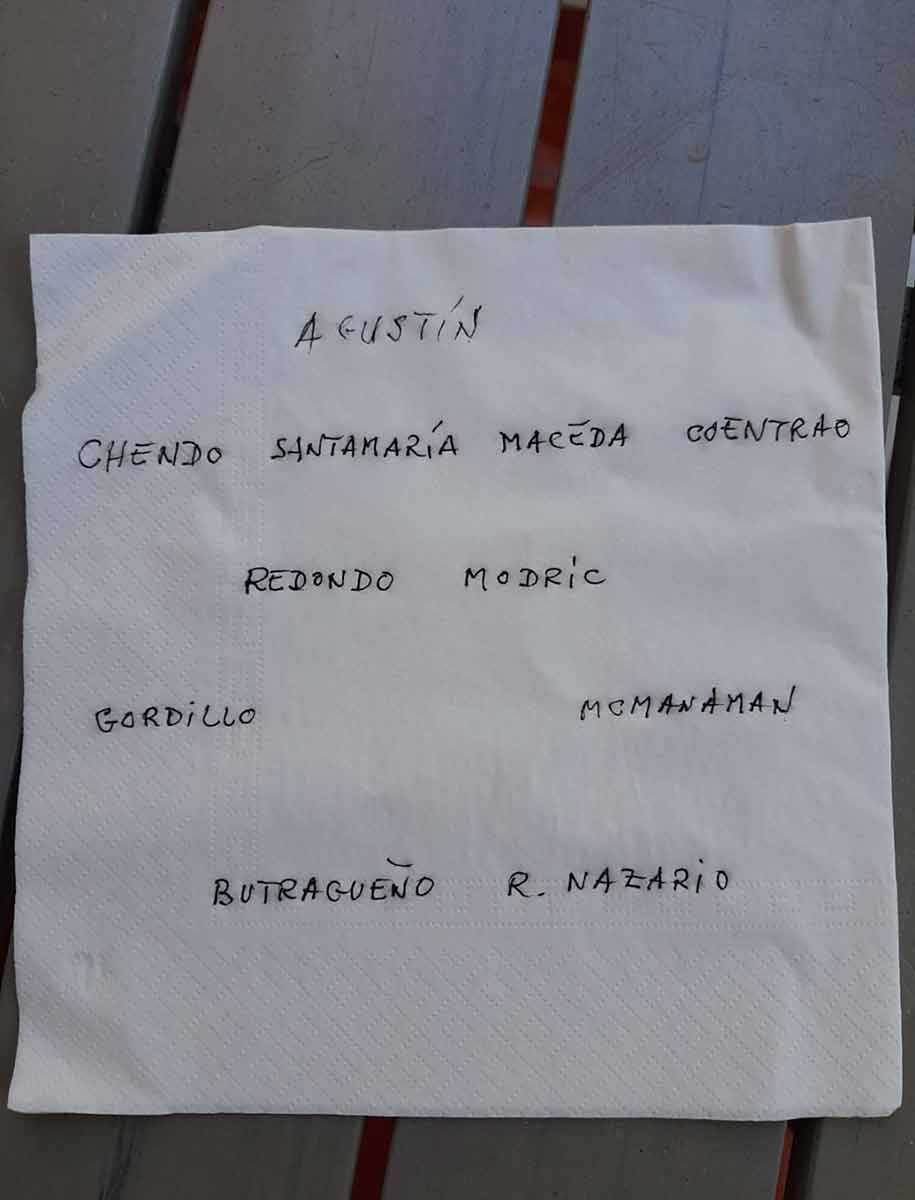 AGUSTÍN
CHENDO SANTAMARÍA MACEDA COENTRAO
REDONDO MODRIC
GORDILLO MCMANAMAN
BUTRAGUEÑO R. NAZARIO